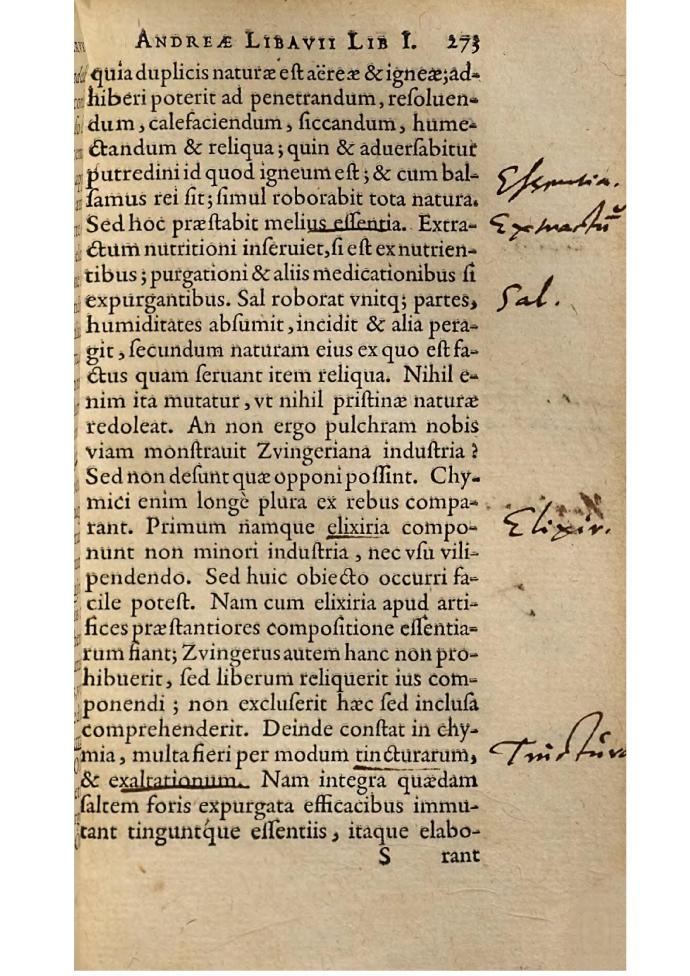 ANDREÆ LIBAVII LIB I. 273
quia duplicis naturæ est aëreæ & igneæ; ad-
hiberi poterit ad penetrandum, resoluen-
dum, calefaciendum, siccandum, hume-
ctandum & reliqua; quin & aduersabitur
putredini id quod igneum est; & cum bal-
samus rei sit; simul roborabit tota natura.
Essentia.
Sed hoc præstabit melius essentia. Extra-
Extractū
ctum nutritioni inseruiet, si est ex nutrien-
tibus; purgationi & aliis medicationibus si
expurgantibus. Sal roborat vnitq; partes,
Sal.
humiditates absumit, incidit & alia pera-
git, secundum naturam eius ex quo est fa-
ctus quam seruant item reliqua. Nihil e-
nim ita mutatur, vt nihil pristinæ naturæ
redoleat. An non ergo pulchram nobis
viam monstrauit Zvingeriana industria?
Sed non desunt quæ opponi possint. Chy-
mici enim longè plura ex rebus compa-
rant. Primum namque elixiria compo-
Elixir.
nunt non minori industria, nec vsu vili-
pendendo. Sed huic obiecto occurri fa-
cile potest. Nam cum elixiria apud arti-
fices præstantiores compositione essentia-
rum fiant; Zvingerus autem hanc non pro-
hibuerit, sed liberum reliquerit ius com-
ponendi; non excluserit hæc sed inclusa
comprehenderit. Deinde constat in chy-
mia, multa fieri per modum tincturarum,
& exaltationum. Nam integra quædam
saltem foris expurgata efficacibus immu-
tant tinguntq́ue essentiis, itaque elabo-
S rant